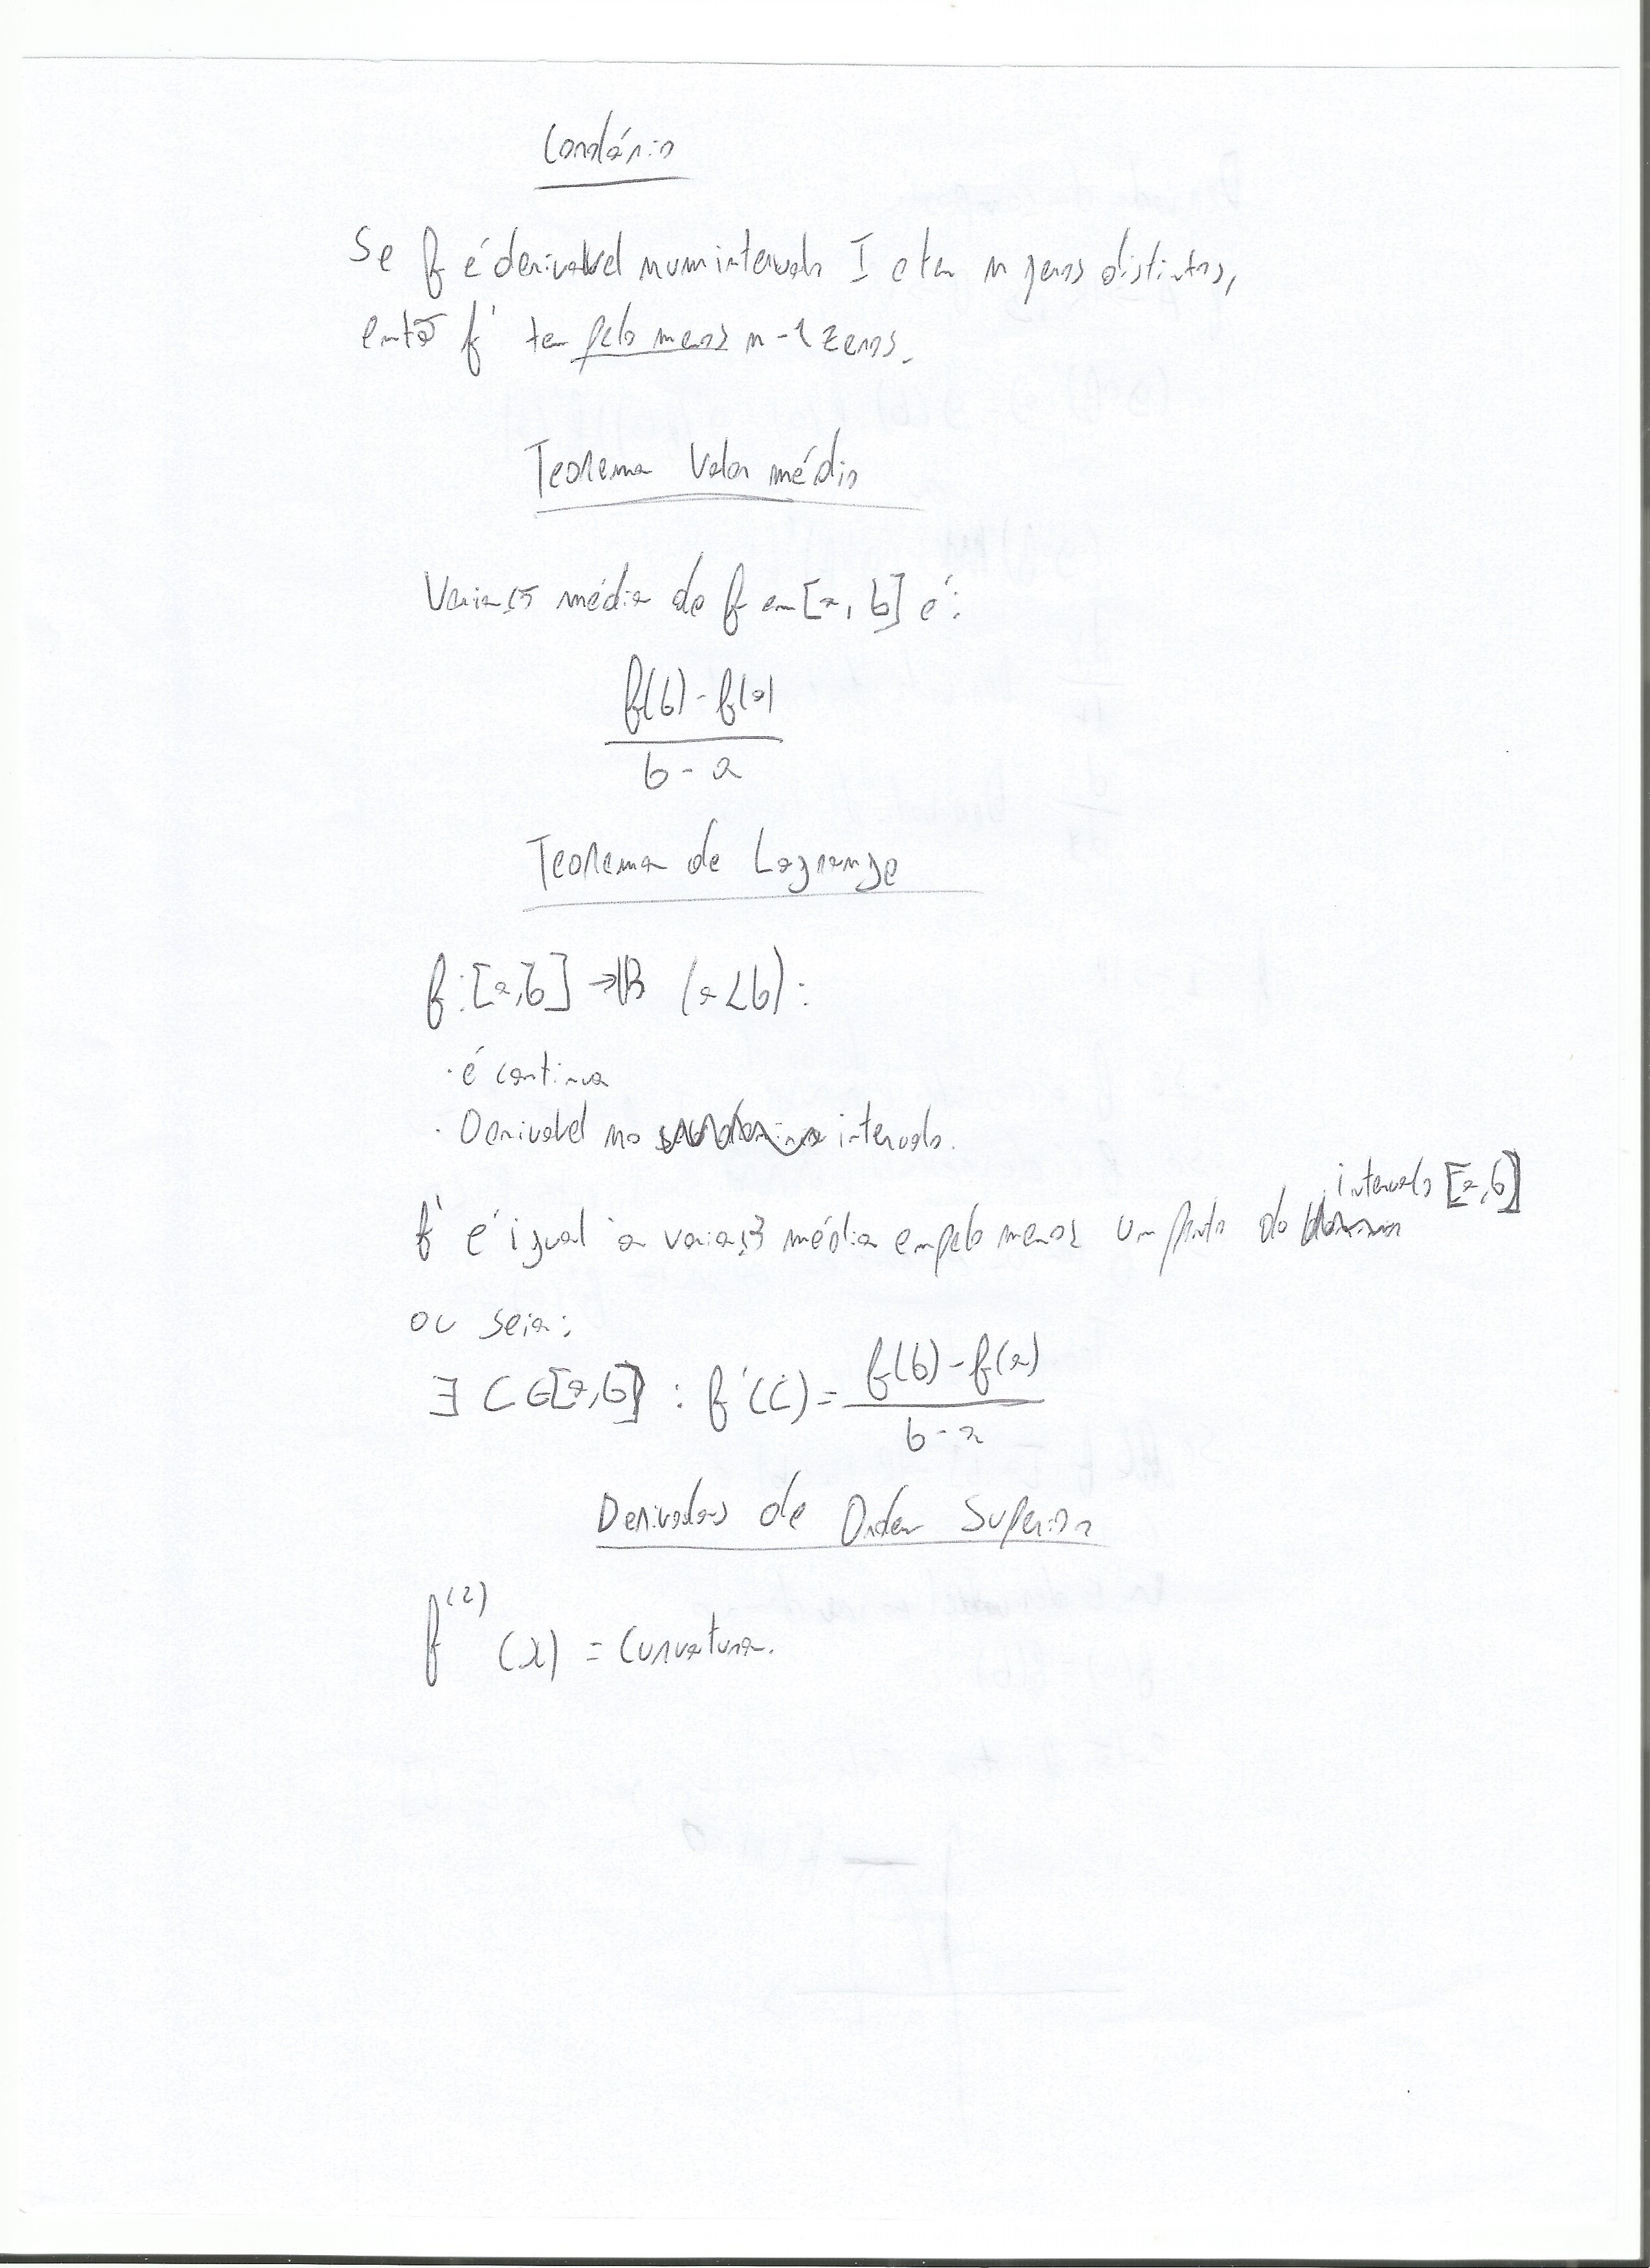 Corolário
Se f é derivável num intervalo I e tem n zeros distintos,
então f' tem pelo menos n-1 zeros.
Teorema Valor médio
Variação média de f em [a, b] é:
f(b) - f(a)
b - a
Teorema de Lagrange
f: [a,b] → IR (a<b):
· é continua
· Derivável no intervalo.
intervalo [a,b]
f' é igual à variação média em pelo menos um ponto do
ou seja:
∃ C ∈ [a,b] : f'(c) = f(b) - f(a)
b - a
Derivadas de Ordem Superior
f⁽²⁾(x) = Curvatura.